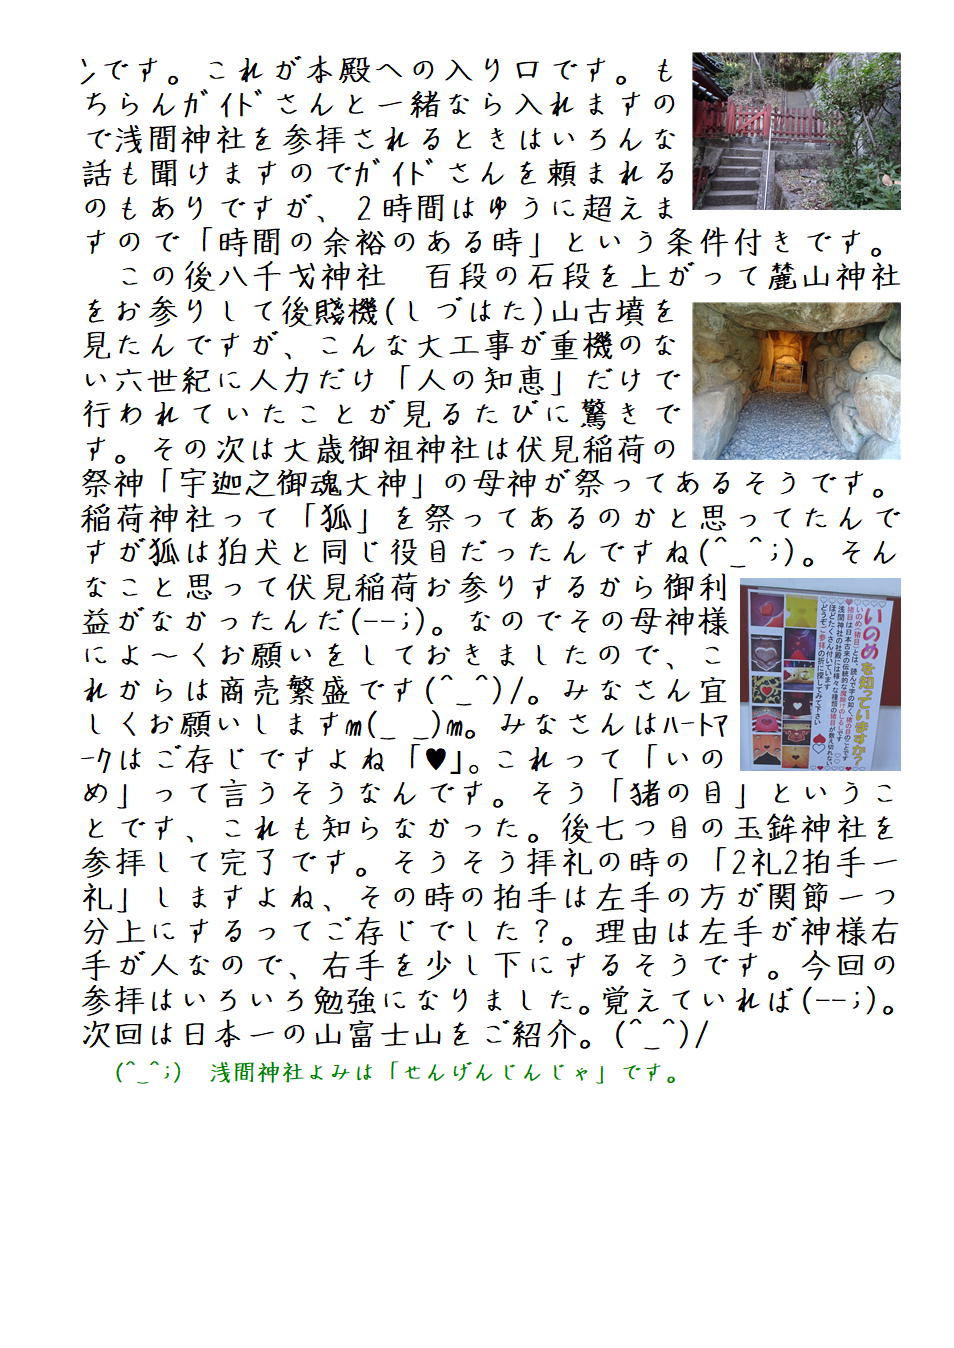 ﾝです。これが本殿への入り口です。も
ちろんｶﾞｲﾄﾞさんと一緒なら入れますの
で浅間神社を参拝されるときはいろんな
話も聞けますのでｶﾞｲﾄﾞさんを頼まれる
のもありですが、２時間はゆうに超えま
すので「時間の余裕のある時」という条件付きです。
この後八千戈神社　百段の石段を上がって麓山神社
をお参りして後賤機(しづはた)山古墳を
見たんですが、こんな大工事が重機のな
い六世紀に人力だけ「人の知恵」だけで
行われていたことが見るたびに驚きで
す。その次は大歳御祖神社は伏見稲荷の
祭神「宇迦之御魂大神」の母神が祭ってあるそうです。
稲荷神社って「狐」を祭ってあるのかと思ってたんで
すが狐は狛犬と同じ役目だったんですね(^_^;)。そん
なこと思って伏見稲荷お参りするから御利
益がなかったんだ(--;)。なのでその母神様
によ～くお願いをしておきましたので、こ
れからは商売繁盛です(^_^)/。みなさん宜
しくお願いしますm(_ _)m。みなさんはﾊｰﾄﾏ
ｰｸはご存じですよね「♥」。これって「いの
め」って言うそうなんです。そう「猪の目」というこ
とです、これも知らなかった。後七つ目の玉鉾神社を
参拝して完了です。そうそう拝礼の時の「2礼2拍手一
礼」しますよね、その時の拍手は左手の方が関節一つ
分上にするってご存じでした？。理由は左手が神様右
手が人なので、右手を少し下にするそうです。今回の
参拝はいろいろ勉強になりました。覚えていれば(--;)。
次回は日本一の山富士山をご紹介。(^_^)/
(^_^;)　浅間神社よみは「せんげんじんじゃ」です。
いのめを知っていますか？
いのめ(猪目)とは、読んで字の如く、猪の目のことです